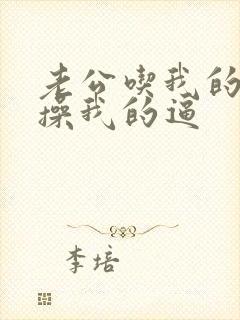 老公喫我的
操我的逼
李培